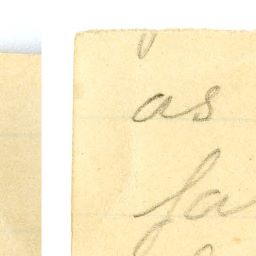 as
fa